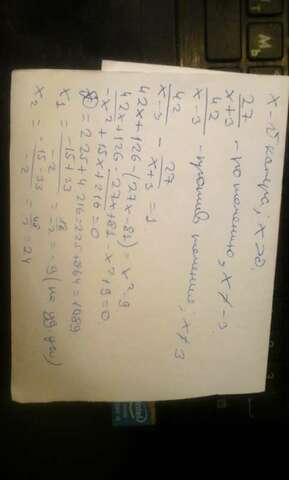 x - V катера; x>0
27/(x+3) - по течению, x≠-3
42/(x-3) - против течения; x≠3
42/(x-3) - 27/(x+3) = 1
42x+126-(27x-81)=x²-9
42x+126-27x+81-x²+9=0
-x²+15x+216=0
D=225+4·216=225+864=1089
x₁=(-15+33)/-2=18/-2=-9 (не уд. усл)
x₂=(-15-33)/-2=48/2=24